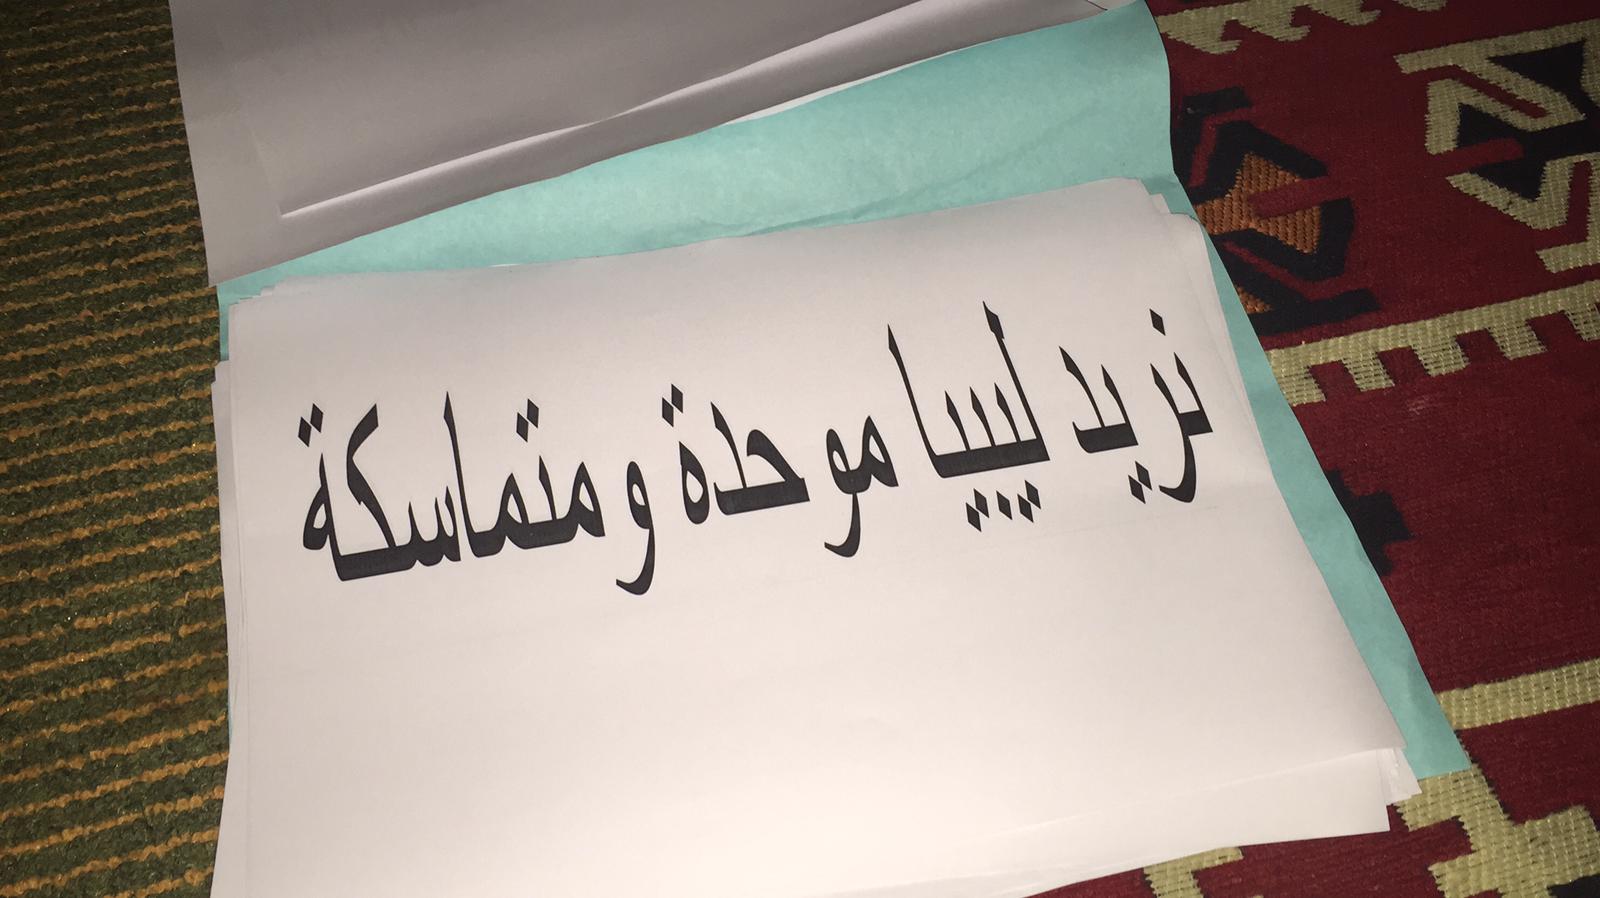 نريد ليبيا موحدة ومتماسكة